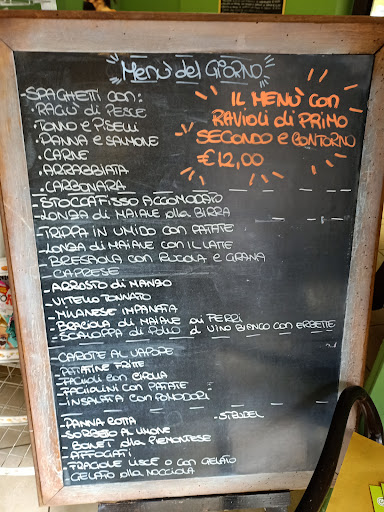 Menù del Giorno
IL MENÙ con
RAVIOLI di PRIMO
SECONDO e CONTORNO
€ 12,00
- SPAGHETTI con:
• RAGÙ di PESCE
• TONNO e PISELLI
• PANNA e SALMONE
• CARNE
• ARRABBIATA
• CARBONARA
- STOCCAFISSO ACCOMODATO
- LONZA di MAIALE alla BIRRA
- TRIPPA IN UMIDO CON PATATE
- LONZA di MAIALE CON IL LATTE
- BRESAOLA CON RUCOLA E GRANA
- CAPRESE
- ARROSTO di MANZO
- VITELLO TONNATO
- MILANESE IMPANATA
- BRACIOLA di MAIALE ai FERRI
- SCALOPPA di POLLO al VINO BIANCO CON ERBETTE
- CAROTE AL VAPORE
- PATATINE FRITTE
- FAGIOLI CON CIPOLLA
- FAGIOLINI CON PATATE
- INSALATA CON POMODORI
- PANNA COTTA
- STRUDEL
- SORBETTO AL LIMONE
- BONET alla PIEMONTESE
- AFFOGATI
- FRAGOLE LISCE O CON GELATO
- GELATO alla NOCCIOLA